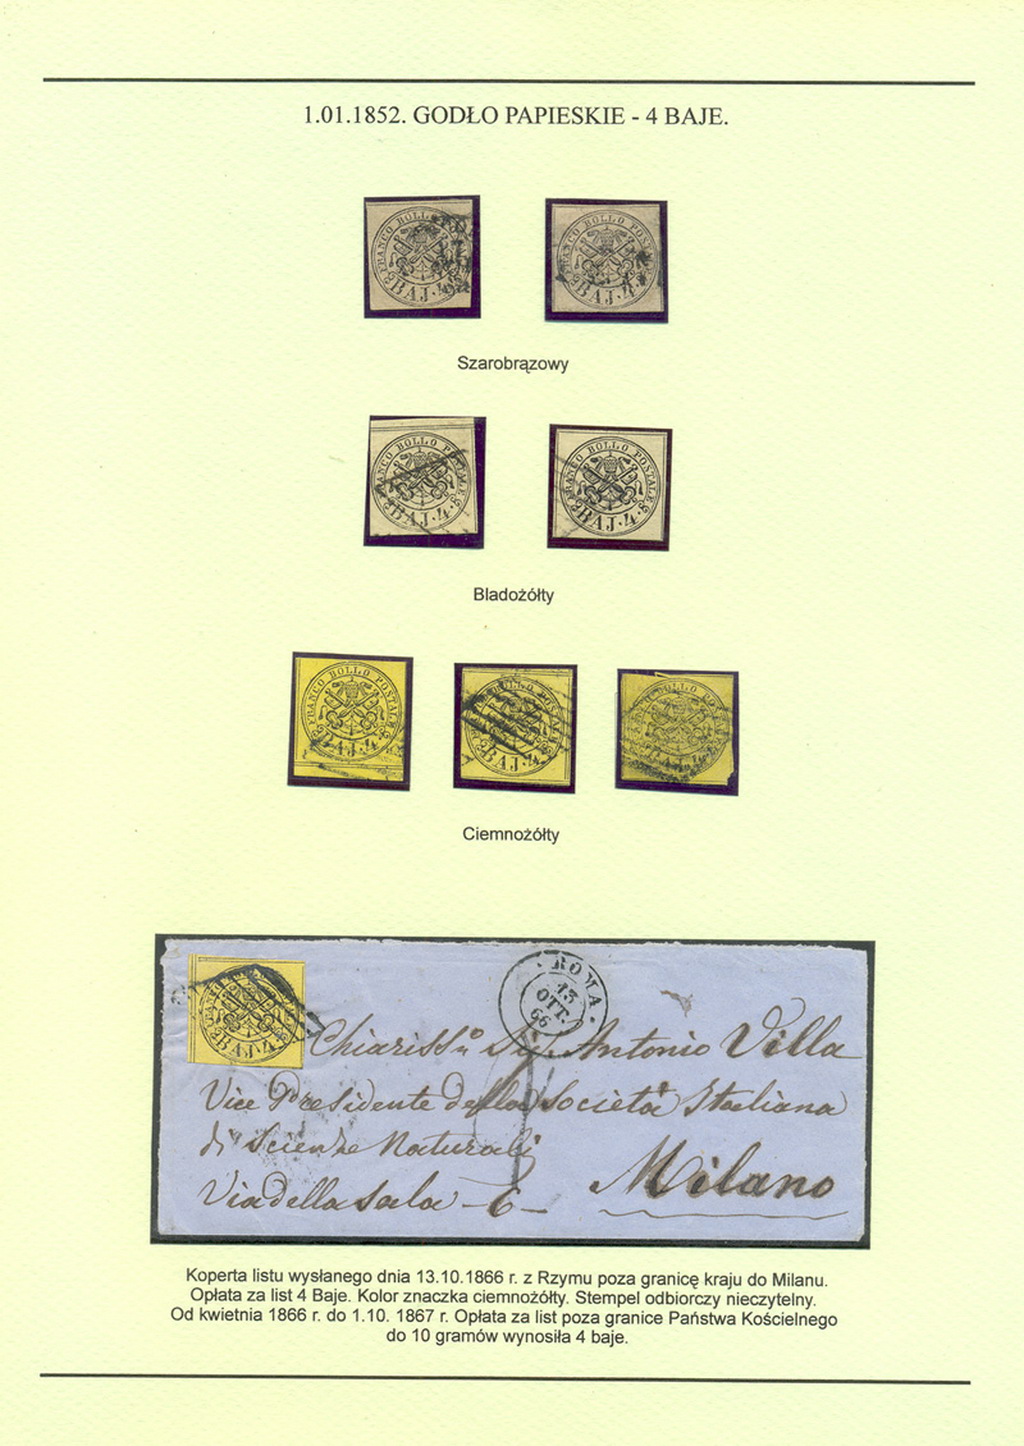 1.01.1852. GODŁO PAPIESKIE - 4 BAJE.
FRANCO BOLLO POSTALE
BAJ. 4
FRANCO BOLLO POSTALE
BAJ. 4
Szarobrązowy
FRANCO BOLLO POSTALE
BAJ. 4
FRANCO BOLLO POSTALE
BAJ. 4
Bladożółty
FRANCO BOLLO POSTALE
BAJ. 4
BAJ. 4
BOLLO POSTALE
BAJ. 4
Ciemnożółty
BAJ. 4
ROMA
13
OTT.
66
Chiariss. Sig. Antonio Villa
Vice Presidente della Società Italiana
di Scienze Naturali
Via della Sala - 6 -
Milano
Koperta listu wysłanego dnia 13.10.1866 r. z Rzymu poza granicę kraju do Milanu.
Opłata za list 4 Baje. Kolor znaczka ciemnożółty. Stempel odbiorczy nieczytelny.
Od kwietnia 1866 r. do 1.10. 1867 r. Opłata za list poza granice Państwa Kościelnego
do 10 gramów wynosiła 4 baje.